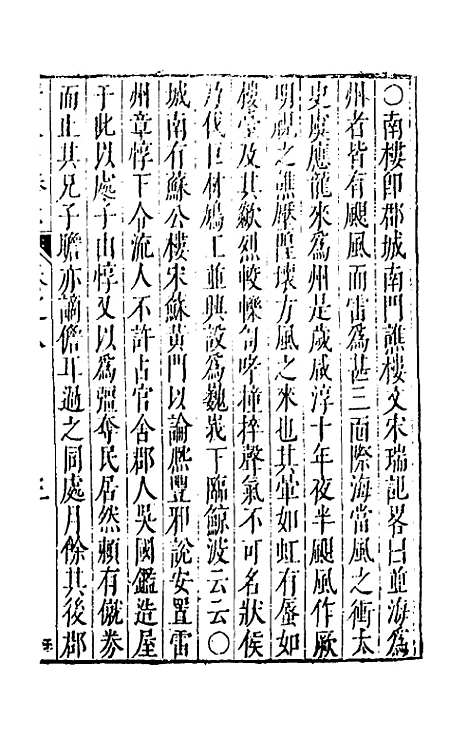 ○南樓卽郡城南門譙樓文宋瑞記畧曰並海爲
州者皆有颶風而雷爲甚三面際海當風之衝太
史虞應龍來爲州是歲咸淳十年夜半颶風作厥
明視之譙壓隍壞方風之來也其暈如虹有蜃如
樓臺及其歘烈軗轢訇哮撞捽聲氣不可名狀侯
乃伐巨材鳩工並興設爲巍峩下臨鯨波云云○
城南有蘇公樓宋蘇黃門以論熈豐邪說安置雷
州章惇下令流人不許占官舍郡人吳國鑑造屋
于此以處子由惇又以爲彊奪民居然賴有僦券
而止其兄子瞻亦謫儋耳過之同處月餘其後郡